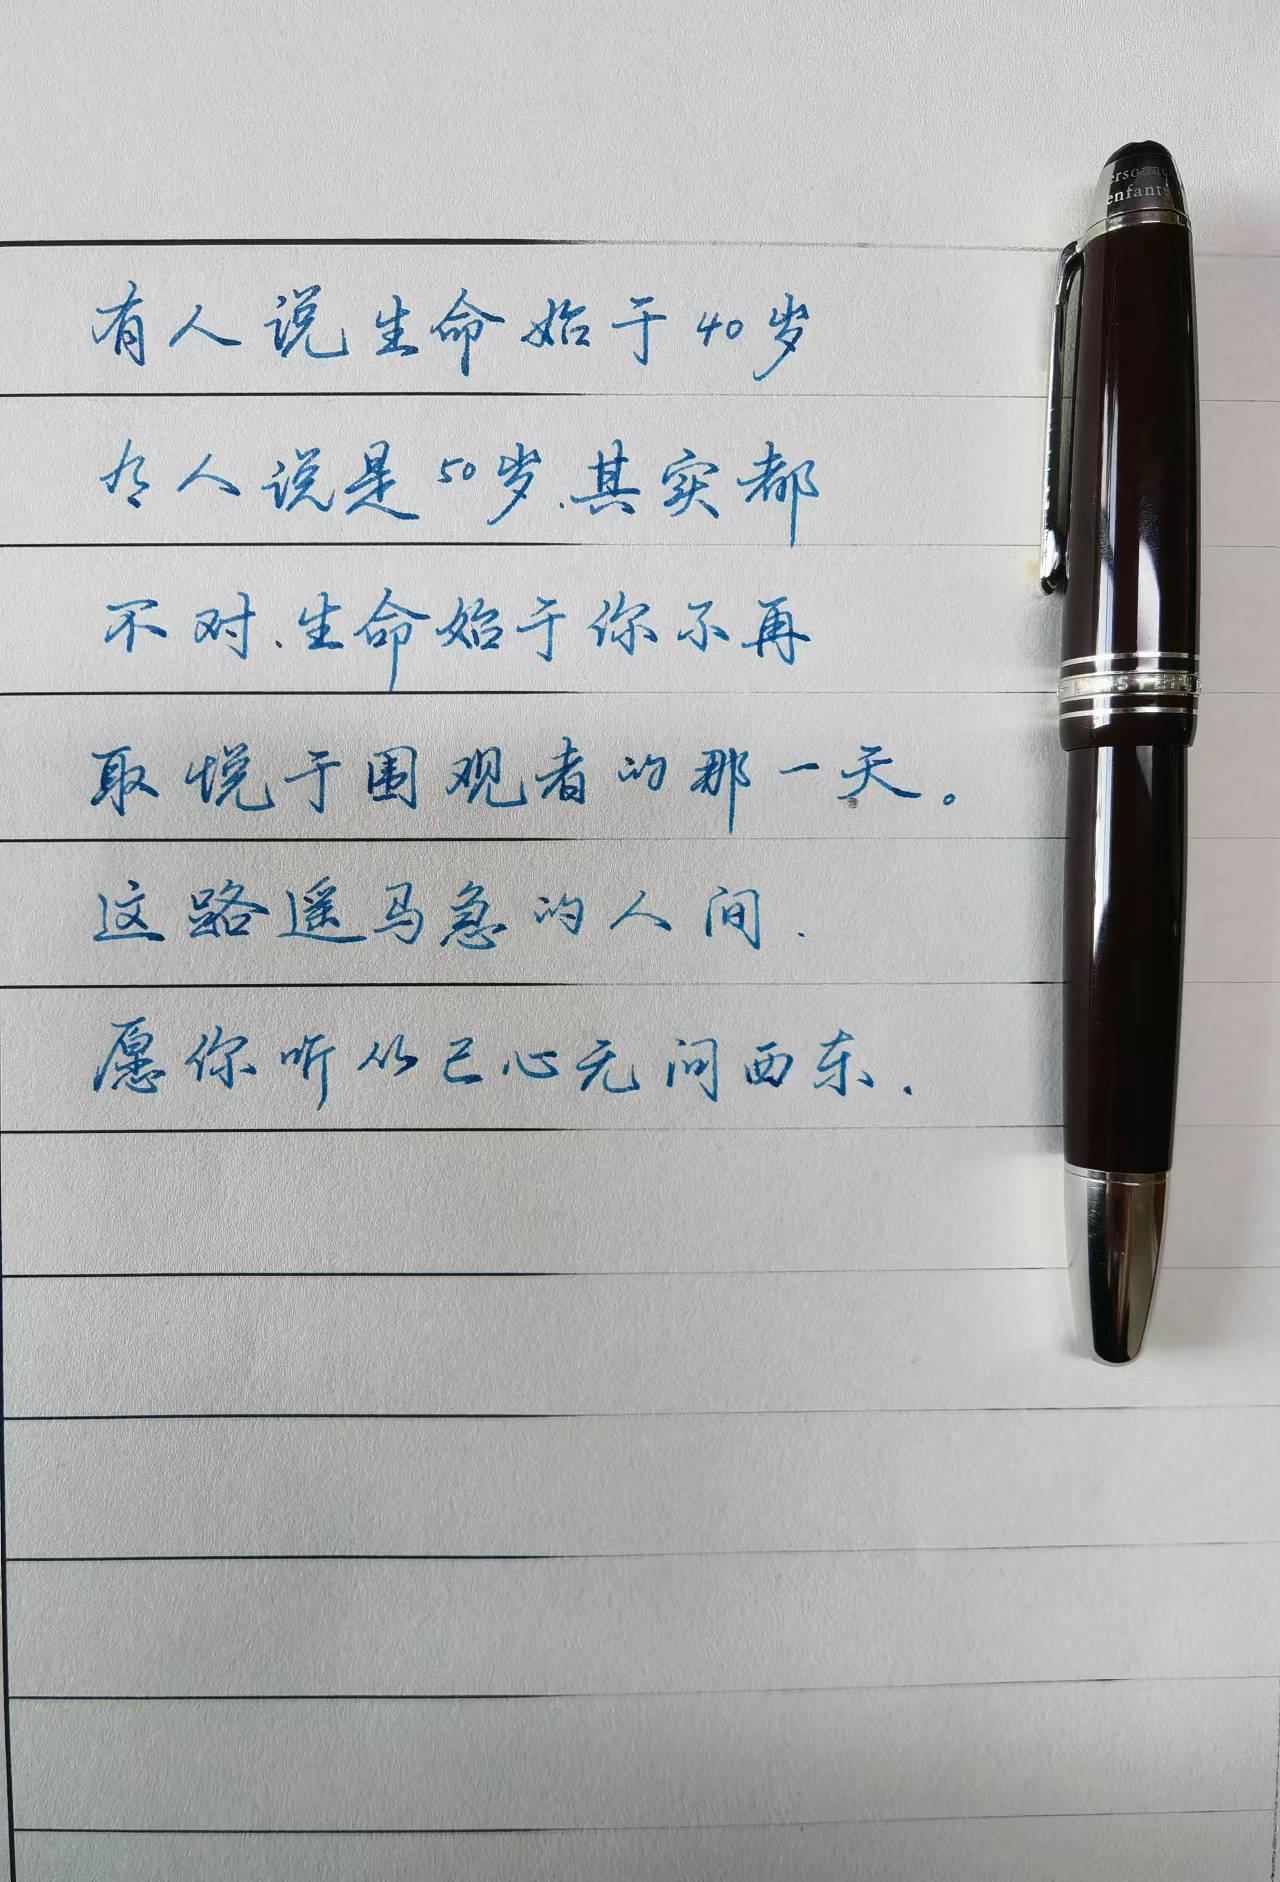 有人说生命始于40岁
有人说是50岁.其实都
不对.生命始于你不再
取悦于围观者的那一天。
这路遥马急的人间.
愿你听从己心无问西东.
enfants